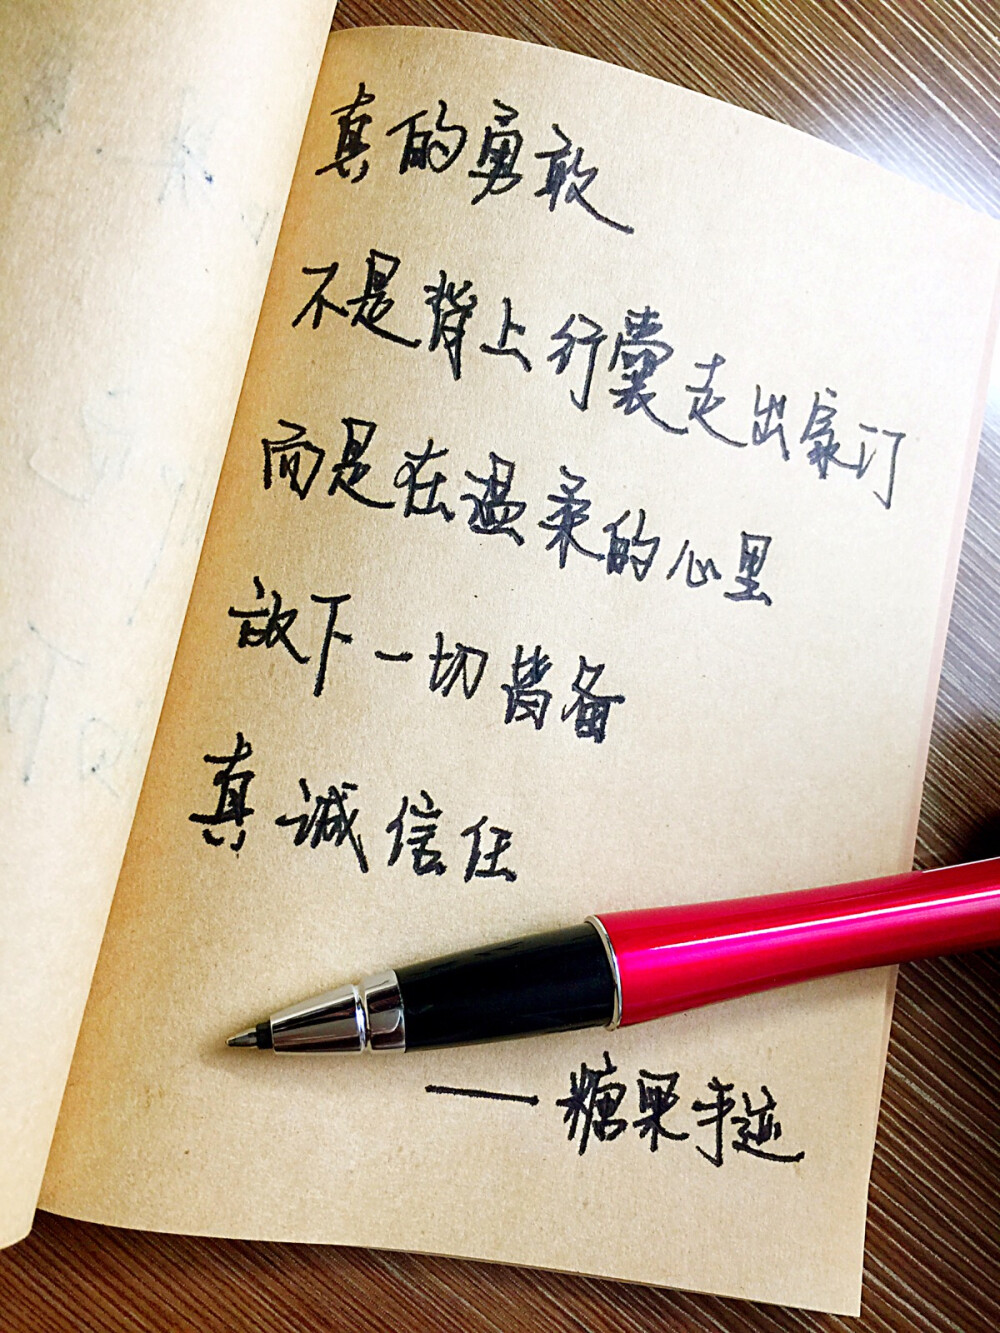 真的勇敢
不是背上行囊走出家门
而是在温柔的心里
放下一切皆备
真诚信任
——糖果手迹